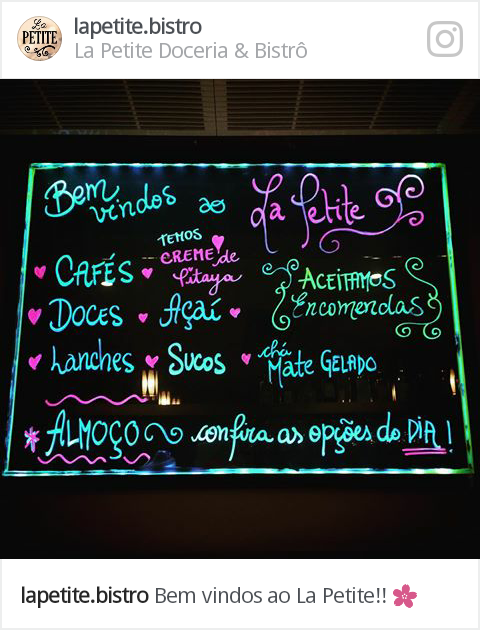 La
PETITE
lapetite.bistro
La Petite Doceria & Bistrô
Bem vindos ao La Petite
TEMOS
CREME de
Pitaya
CAFÉS
ACEITAMOS
Encomendas
DOCES Açaí
Lanches Sucos chá Mate GELADO
* ALMOÇO confira as opções do DIA!
lapetite.bistro Bem vindos ao La Petite!! 🌸